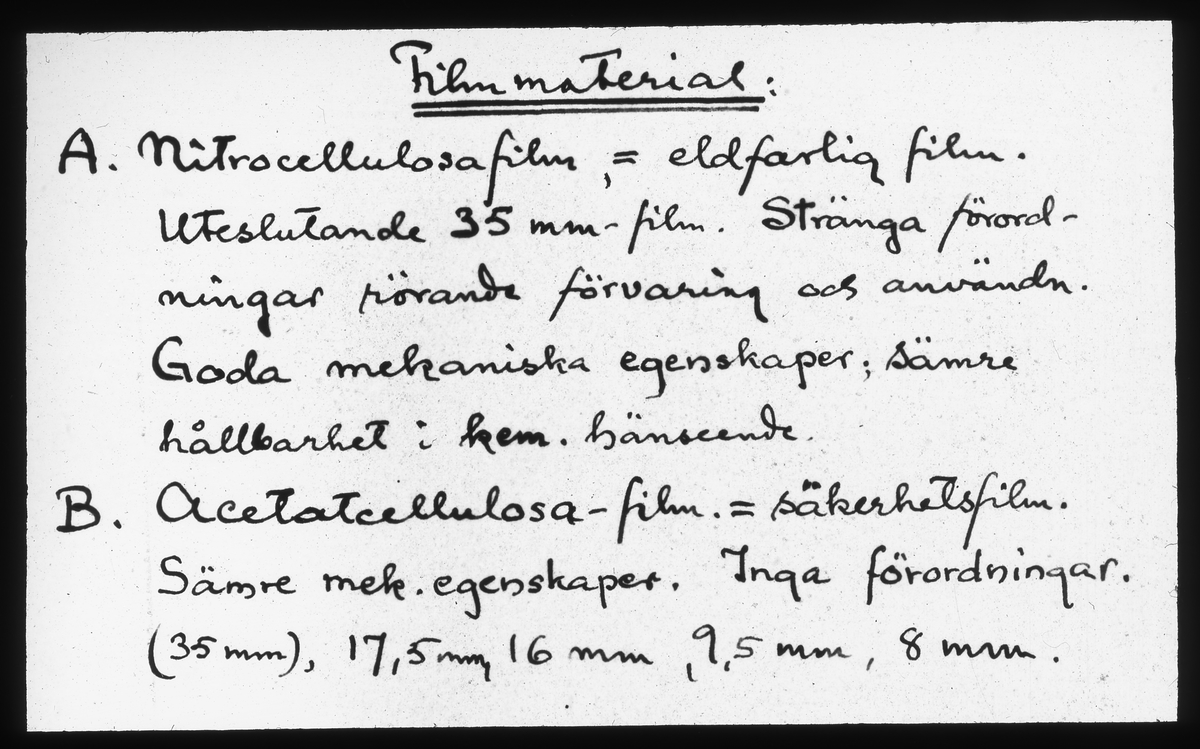 Filmmaterial:
A. Nitrocellulosafilm, = eldfarlig film.
Uteslutande 35 mm-film. Stränga förord-
ningar rörande förvaring och användn.
Goda mekaniska egenskaper; sämre
hållbarhet i kem. hänseende.
B. Acetatcellulosa-film. = säkerhetsfilm.
Sämre mek. egenskaper. Inga förordningar.
(35 mm), 17,5 mm, 16 mm, 9,5 mm, 8 mm.